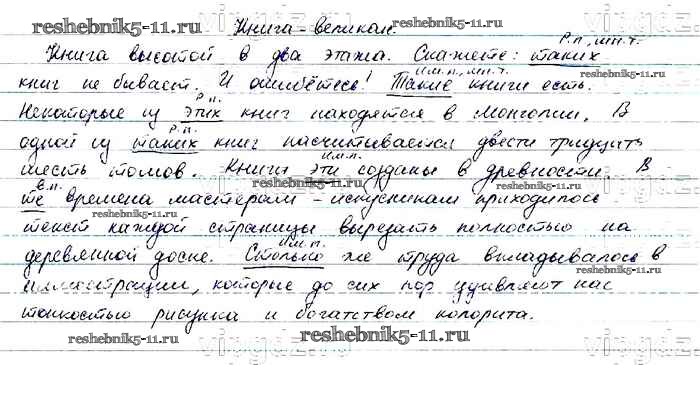 Книга-великан.
Р.п., мн.ч.
Книга высотой в два этажа. Скажете: таких
Им.п., мн.ч.
книг не бывает. И ошибётесь! Такие книги есть.
Р.п.
Некоторые из этих книг находятся в Монголии. В
Р.п.
одной из таких книг насчитывается двести тридцать
Им.п.
шесть томов. Книги эти созданы в древности. В
В.п.
те времена мастерам-искусникам приходилось
текст каждой страницы вырезать полностью на
Им.п.
деревянной доске. Столько же труда вкладывалось в
иллюстрации, которые до сих пор удивляют нас
тонкостью рисунка и богатством колорита.
reshebnik5-11.ru
reshebnik5-11.ru
reshebnik5-11.ru
reshebnik5-11.ru
reshebnik5-11.ru
reshebnik5-11.ru
reshebnik5-11.ru
reshebnik5-11.ru